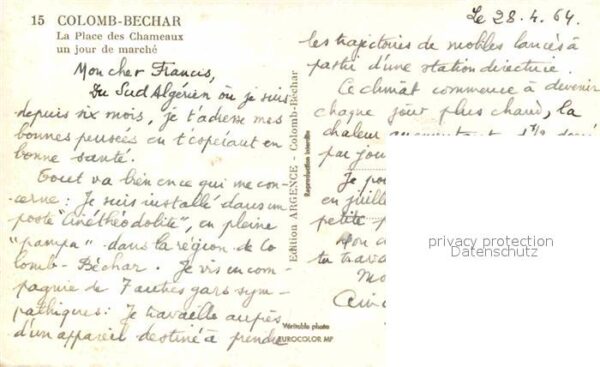 15 COLOMB-BECHAR
La Place des Chameaux
un jour de marché
Mon cher Francis,
Du Sud Algérien où je suis
depuis six mois, je t'adresse mes
bonnes pensées en t'espérant en
bonne santé.
Tout va bien en ce qui me con-
cerne : Je suis installé dans un
poste "Cinéthéodolite", en pleine
"pampa" dans la région de Co
lomb-Béchar. Je vis en com-
pagnie de 7 autres gars sym-
pathiques : Je travaille auprès
d'un appareil destiné à prendre
Edition ARGENCE - Colomb-Béchar
Reproduction interdite
Véritable photo
EUROCOLOR MP
Le 28.4.64.
les trajectoires de mobiles lancés à
partir d'une station directrice.
Ce climat commence à devenir
chaque jour plus chaud, la
chaleur
par jour
Je
en juille
petite
Mon c
tu trava
privacy protection
Datenschutz